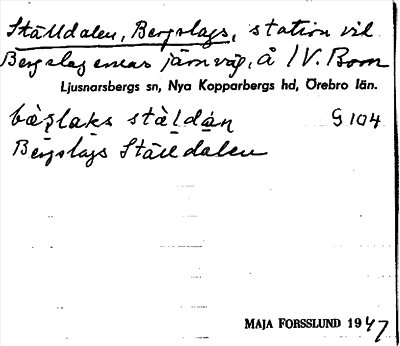 Ställdalen, Bergslags, station vid
Bergslagernas järnväg, å 1 V. Born
Ljusnarsbergs sn, Nya Kopparbergs hd, Örebro län.
bæ̀ṣlaks stæ̀ldán G 104
Bergslags Ställdalen
MAJA FORSSLUND 1947